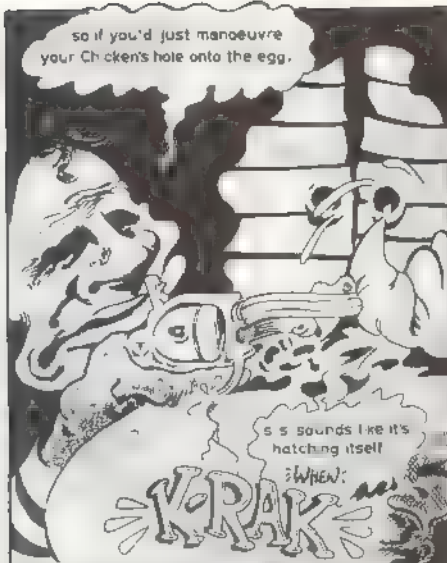 so if you'd just manoeuvre
your Chicken's hole onto the egg.
s s sounds like it's
hatching itself
:WHEN:
K-RAK